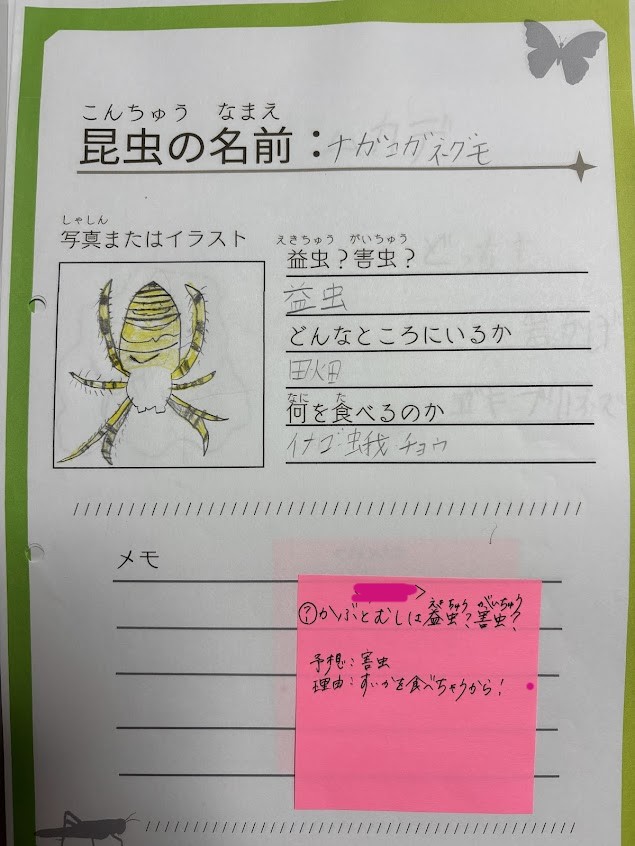 こんちゅう なまえ
昆虫の名前：ナガコガネグモ
しゃしん
写真またはイラスト
えきちゅう がいちゅう
益虫？害虫？
益虫
どんなところにいるか
田畑
なに た
何を食べるのか
イナゴ 蛾 チョウ
メモ
えきちゅう がいちゅう
?かぶとむしは益虫？害虫？
予想：害虫
理由：すいかを食べちゃうから！